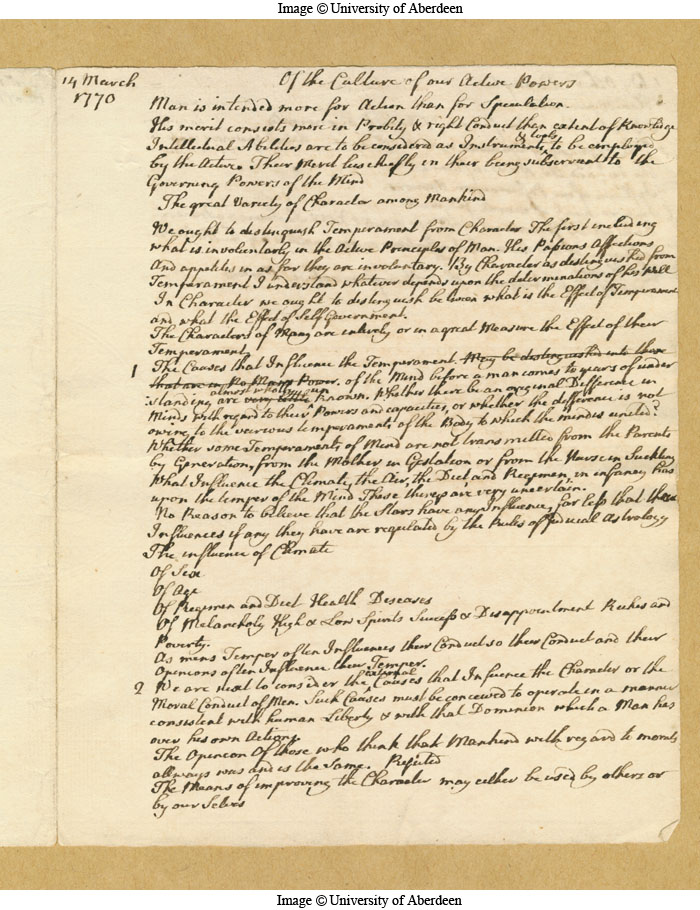 Image © University of Aberdeen
14 March
1770
Of the Culture of our Active Powers
Man is intended more for Action than for Speculation.
His merit consists more in Probity & right Conduct than extent of Knowledge
Intellectual Abilities are to be considered as Instruments & tools to be employed
by the Active. Their Merit lies chiefly in their being subservient to the
Governing Powers of the Mind
The great Variety of Character among Mankind
We ought to distinguish Temperament from Character The first including
what is involuntarly in the Active Principles of Man. His Passions Affections
And appetites in as far they are involuntary. By Character as distinguished from
Temperament I understand whatever depends upon the determinations of his Will
In Character we ought to distinguish between what is the Effect of Temperament
and what the Effect of Self Government.
The Characters of Many are intirely or in a great Measure the Effect of their
Temperament
1 The Causes that Influence the Temperament. May be distinguished into those
that are in No Mans Power. of the Mind before a man comes to years of under
standing are very little almost wholly un known. Whether there be an original Difference in
Minds with regard to their Powers and capacities, or whether the difference is not
owing to the various temperaments of the Body to which the mind is united?
Whether some Temperaments of Mind are not transmitted from the Parents
by Generation, from the Mother in Gestation or from the Nurse in Suckling
What Influence the Climate, the Air, the Diet and Regimen in infancy has
upon the temper of the Mind These things are very uncertain.
No Reason to believe that the Stars have any Influence, far less that the
Influences if any they have are regulated by the Rules of judicial Astrology
The influence of Climate
Of Sex
Of Age
Of Regimen and Diet Health Diseases
Of Melancholy High & Low Spirits Success & Disappointment Riches and
Poverty.
As mens Temper often Influences their Conduct so their Conduct and their
Opinions often Influence their Temper.
2 We are next to consider the external Causes that Influence the Character or the
Moral Conduct of Men. Such Causes must be conceived to operate in a manner
consistent with human Liberty & with that Dominion which a Man has
over his own Actions.
The Opinion Of those who think that Mankind with regard to morals
allways was and is the same. Rejected
The Means of improving the Character may either be used by others or
by our Selves
Image © University of Aberdeen